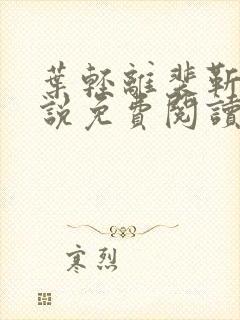 葉輕離裴靳
說免費閱讀
寒烈